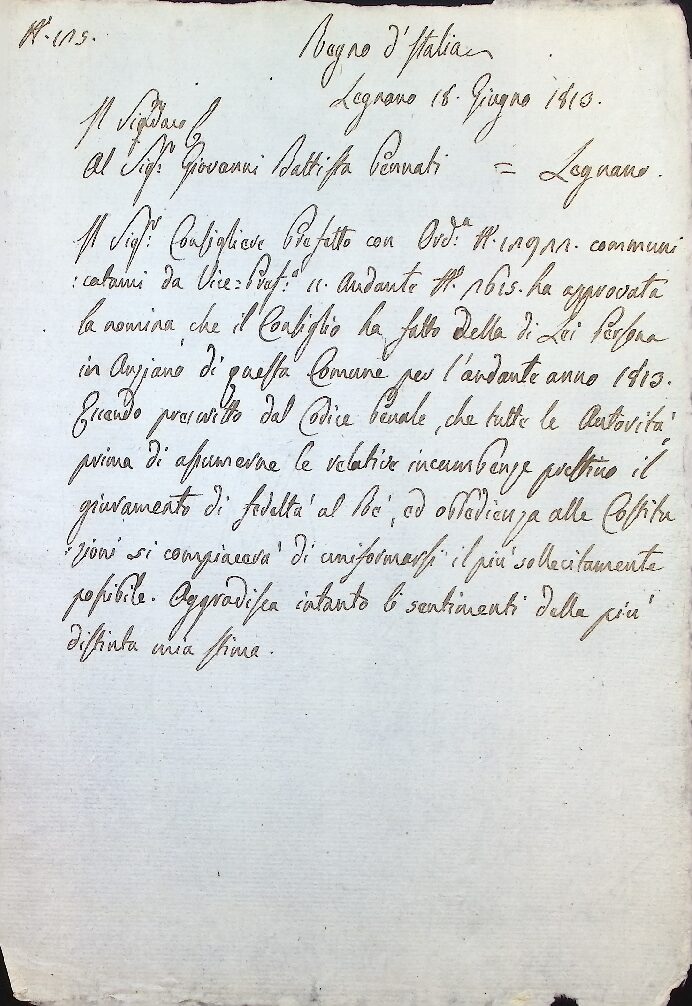 N.° 175.
Regno d'Italia
Legnano 18. Giugno 1813.
Il Sindaco
Al Sig.r Giovanni Battista Pennati = Legnano.
Il Sig.r Consigliere Prefetto con Ord.a N.° communi
:catami da Vice=Pref.o 11. Andante N.° 1615. ha approvata
la nomina che il Consiglio ha fatto della di Lei Persona
in Anziano di questa Comune per l'andante anno 1813.
Essendo prescritto dal Codice Penale, che tutte le Autorità
prima di assumerne le relative incumbenze prestino il
giuramento di fedeltà al Rè, ed obbedienza alle Costitu
:zioni si compiacerà di uniformarsi il più sollecitamente
possibile. Aggradisca intanto li sentimenti della più
distinta mia stima.